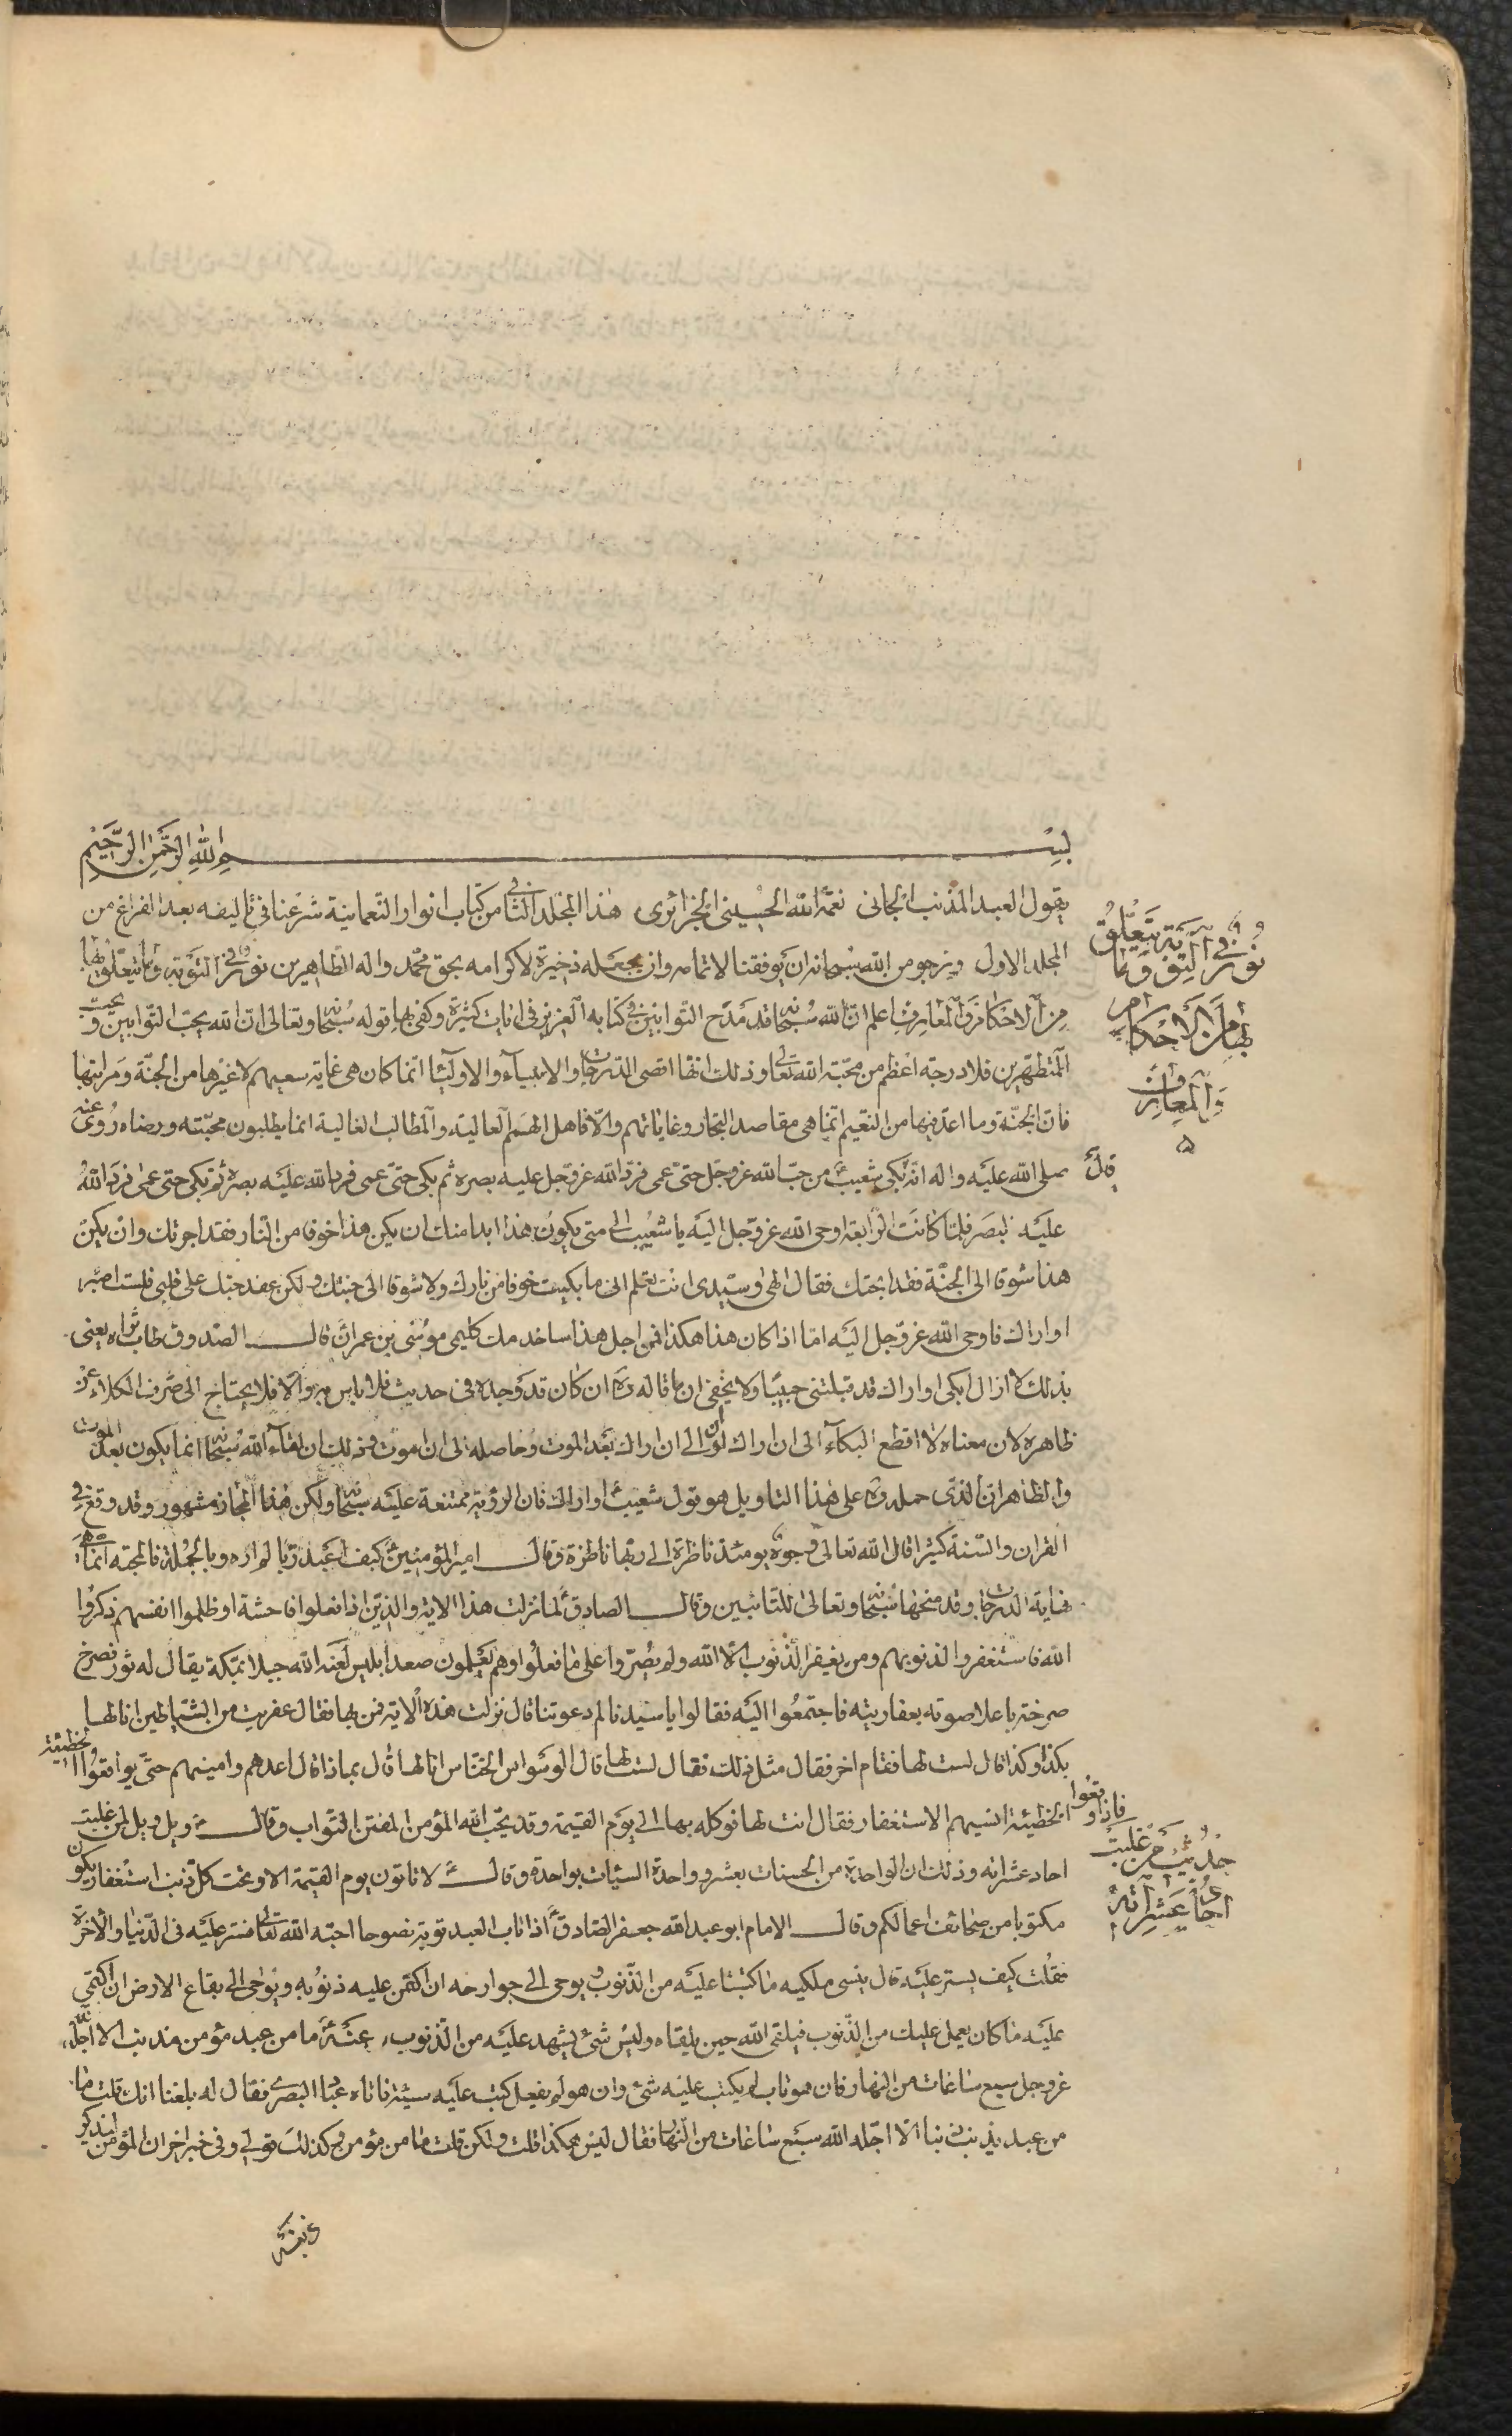 بسم الله الرحمن الرحيم
يقول العبد المذنب الجانى نعمة الله الحسينى الجزائرى هذا المجلد الثانى من كتاب انوار النعمانية شرعنا فى تاليفه بعد الفراغ من
المجلد الاول ونرجو من الله سبحانه ان يوفقنا لاتمامه وان يجعله ذخيرة لاكرامه بحق محمد واله الطاهرين نور فى التوبة وما يتعلق بها
من الاحكام والمعارف اعلم ان الله سبحانه قد مدح التوابين فى كتابه العزيز فى ايات كثيرة وكفى بها قوله سبحانه وتعالى ان الله يحب التوابين ويحب
المتطهرين فلا درجة اعظم من محبة الله تعالى وذلك انها اقصى الدرجات والانبياء والاولياء انما كان هى غاية سعيهم لا غيرها من الجنة ومراتبها
فان الجنة وما اعد فيها من النعيم انما هى مقاصد التجار وغاياتهم والا فاهل الهمم العالية والمطالب الغالية انما يطلبون محبته ورضاه روى عنه
صلى الله عليه واله انه بكى شعيب من حب الله عز وجل حتى عمى فرد الله عز وجل عليه بصره ثم بكى حتى عمى فرد الله عليه بصره ثم بكى حتى عمى فرد الله
عليه بصر فلما كانت الرابعة اوحى الله عز وجل اليه يا شعيب الى متى يكون هذا ابدا منك ان يكن هذا خوفا من النار فقد اجرتك وان يكن
هذا شوقا الى الجنة فقد ابحتك فقال الهى وسيدى انت تعلم انى ما بكيت خوفا من نارك ولا شوقا الى جنتك ولكن عقد حبك على قلبى فلست اصبر
او اراك فاوحى الله عز وجل اليه اما اذا كان هذا هكذا فمن اجل هذا ساخدمك كليمى موسى بن عمران قال الصدوق طاب ثراه يعنى
بذلك لا ازال ابكى او اراك قد قبلتنى حبيبا ولا يخفى ان ما قاله ره ان كان قد وجده فى حديث فلا باس به والا فلا يحتاج الى صرف الكلام عن
ظاهره لان معناه لا اقطع البكاء الى ان اراك اى الى ان اراك بعد الموت وحاصله الى ان اموت وذلك ان لقاء الله سبحانه انما يكون بعد الموت
والظاهر ان الذى حمله ره على هذا التاويل هو قول شعيب او اراك فان الرؤية ممتنعة عليه سبحانه ولكن هذا المجاز مشهور وقد وقع فى
القران والسنة كثيرا قال الله تعالى وجوه يومئذ ناظرة الى ربها ناظرة وقال امير المؤمنين كيف اعبد ربا لم اره وبالجملة فالمحبة انما هى
نهاية الدرجات وقد منحها سبحانه وتعالى للتائبين وقال الصادق لما نزلت هذا الاية والذين اذا فعلوا فاحشة او ظلموا انفسهم ذكروا
الله فاستغفروا لذنوبهم ومن يغفر الذنوب الا الله ولم يصروا على ما فعلوا وهم يعلمون صعد ابليس لعنه الله جبلا بمكة يقال له ثور فصرخ
صرخة باعلا صوته بعفاريته فاجتمعوا اليه فقالوا يا سيدنا لم دعوتنا قال نزلت هذه الاية فمن بها فقال عفريت من الشياطين انا لها
بكذا وكذا قال لست لها فقام اخر فقال مثل ذلك فقال لست لها قال الوسواس الخناس انا لها قال بماذا قال اعدهم وامنيهم حتى يواقعوا الخطيئة
فاذا وقعوا الخطيئة انسيهم الاستغفار فقال انت لها فوكله بها الى يوم القيمة وقد يحب الله المؤمن المفتن التواب وقال ويل ويل لمن غلبت
احاد عشراته وذلك ان الواحدة من الحسنات بعشر وواحدة السيئات بواحدة وقال لا تاتون يوم القيمة الا وتحت كل ذنب استغفار يكون
مكتوبا من صحائف اعمالكم وقال الامام ابو عبد الله جعفر الصادق اذا تاب العبد توبة نصوحا احبه الله تعالى فستر عليه فى الدنيا والاخرة
فقلت كيف يستر عليه قال ينسى ملكيه ما كتبتا عليه من الذنوب ويوحى الى جوارحه ان اكتمن عليه ذنوبه ويوحى الى بقاع الارض ان اكتمى
عليه ما كان يعمل عليك من الذنوب فيلقى الله حين يلقاه وليس شىء يشهد عليه من الذنوب، عنه ما من عبد مؤمن مذنب الا اجله
عز وجل سبع ساعات من النهار فان هو تاب لم يكتب عليه شىء وان هو لم يفعل كتب عليه سيئة فاتاه عباد البصرى فقال له بلغنا انك قلت ما
من عبد يذنب ذنبا الا اجله الله سبع ساعات من النهار فقال ليس هكذا قلت ولكن قلت ما من مؤمن وكذلك قولى وفى خبر اخر ان المؤمن ليذكر
ذنبه
نور فى التوبة وما يتعلق
بها من الاحكام
والمعارف
حديث من غلبت
احاده عشراته